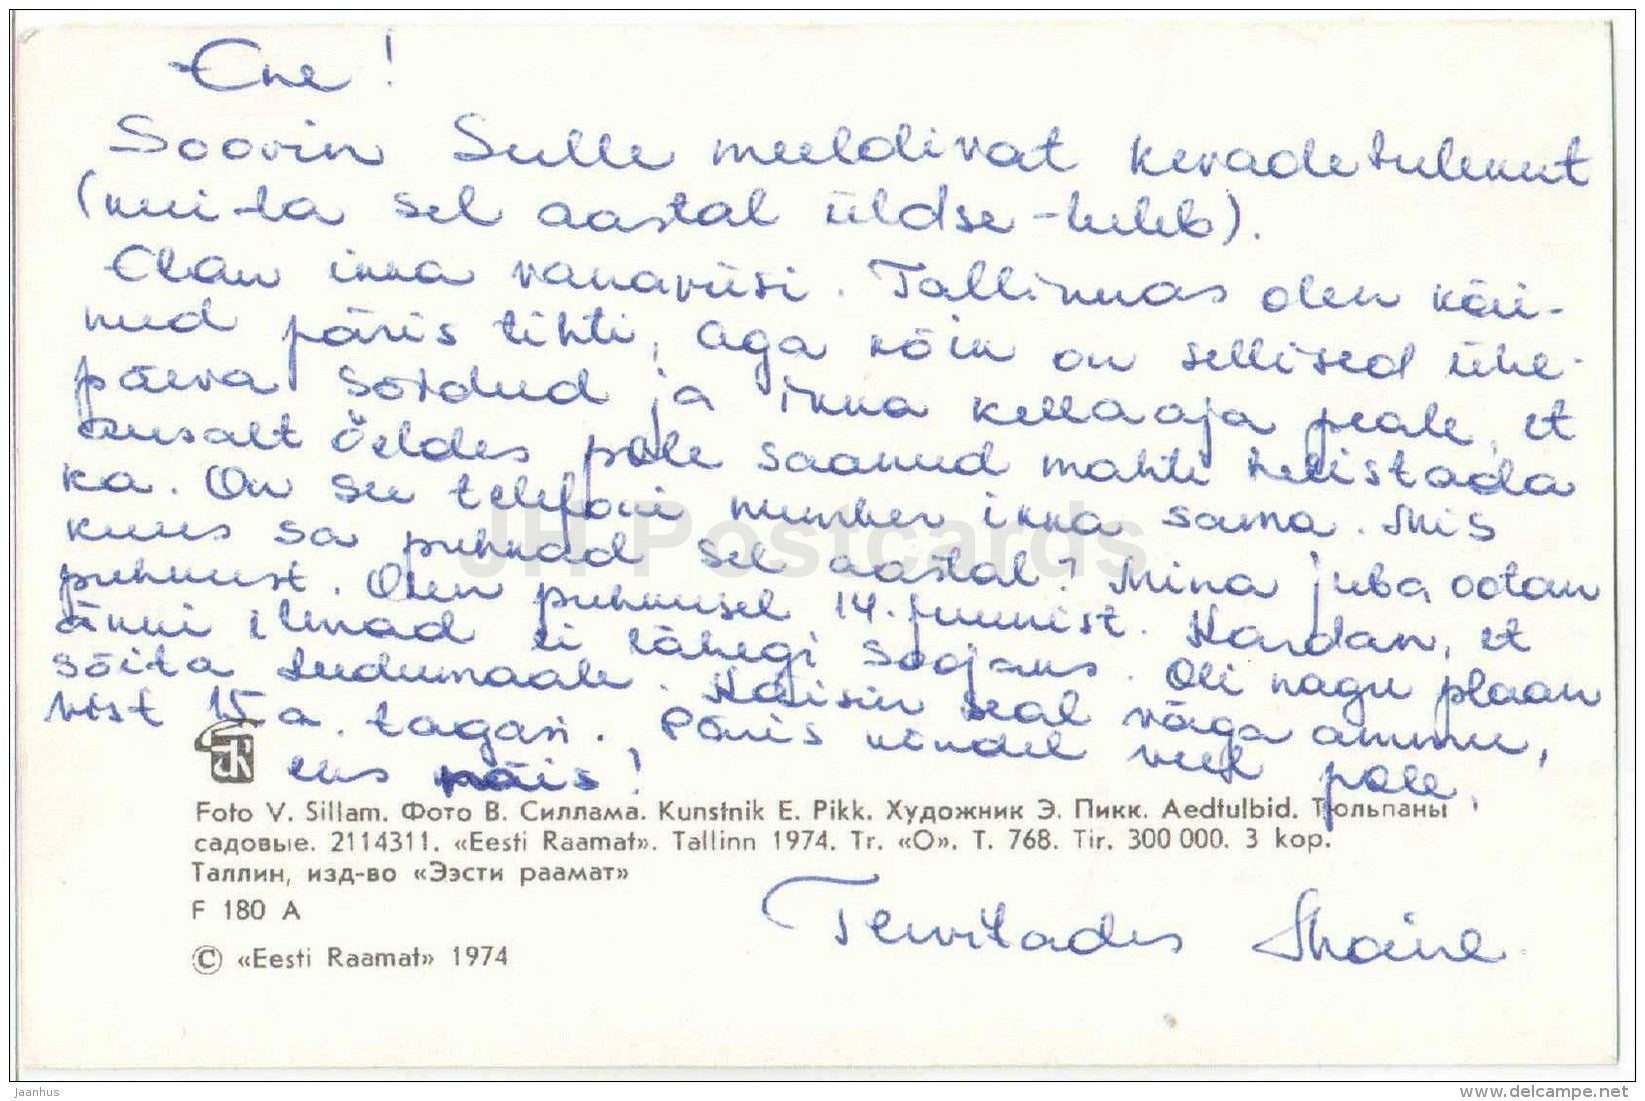 Ene!
Soovin Sulle meeldivat kevadetulekut
(kui ta sel aastal üldse tuleb).
Elan ikka vanaviisi. Tallinnas olen käi-
nud päris tihti, aga kõik on sellised ühe-
päeva sõidud ja ikka kellaaja peale, et
ausalt öeldes pole saanud mahti helistada
ka. On su telefoni number ikka sama. Mis
kuus sa puhkad sel aastal? Mina juba ootan
puhkust. Olen puhkusel 14. juunist. Kardan, et
äkki ilmad ei lähegi soojaks. Oli nagu plaan
sõita Leedumaale. Käisin seal väga ammu,
vist 15 a. tagasi. Päris kindel veel pole,
eks näis!
Foto V. Sillam. Фото В. Силлама. Kunstnik E. Pikk. Художник Э. Пикк. Aedtulbid. Тюльпаны
садовые. 2114311. «Eesti Raamat». Tallinn 1974. Tr. «O». T. 768. Tir. 300 000. 3 kop.
Таллин, изд-во «Ээсти раамат»
F 180 A
Tervitades
© «Eesti Raamat» 1974
JH Postcards
jaanhus
www.delcampe.net